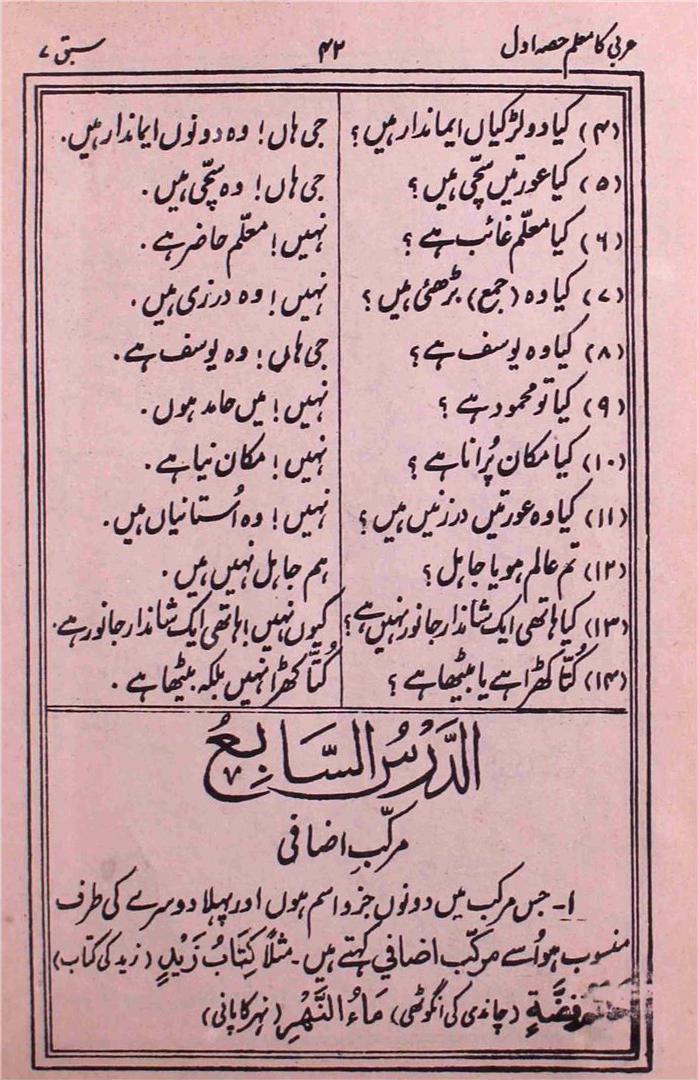 عربی کا معلم حصہ اول ۴۲ سبق ۷
(۴) کیا دو لڑکیاں ایماندار ہیں؟ جی ہاں! وہ دونوں ایماندار ہیں۔
(۵) کیا عورتیں سچّی ہیں؟ جی ہاں! وہ سچّی ہیں۔
(۶) کیا معلّم غائب ہے؟ نہیں! معلّم حاضر ہے۔
(۷) کیا وہ (جمع) بڑھئی ہیں؟ نہیں! وہ درزی ہیں۔
(۸) کیا وہ یوسف ہے؟ جی ہاں! وہ یوسف ہے۔
(۹) کیا تو محمود ہے؟ نہیں! میں حامد ہوں۔
(۱۰) کیا مکان پُرانا ہے؟ نہیں! مکان نیا ہے۔
(۱۱) کیا وہ عورتیں درزنیں ہیں؟ نہیں! وہ اُستانیاں ہیں۔
(۱۲) تم عالم ہو یا جاہل؟ ہم جاہل نہیں ہیں۔
(۱۳) کیا ہاتھی ایک شاندار جانور نہیں ہے؟ کیوں نہیں! ہاتھی ایک شاندار جانور ہے۔
(۱۴) کُتّا کھڑا ہے یا بیٹھا ہے؟ کُتّا کھڑا نہیں بلکہ بیٹھا ہے۔
الدَّرْسُ السَّابِعُ ۷
مرکّبِ اضافی
۱۔ جس مرکب میں دونوں جزو اسم ہوں اور پہلا دوسرے کی طرف
منسوب ہو اُسے مرکّب اضافی کہتے ہیں۔ مثلاً کِتَابُ زَیْدٍ (زید کی کتاب)
فِضَّةٍ (چاندی کی انگوٹھی) مَاءُ النَّهْرِ (نہر کا پانی)